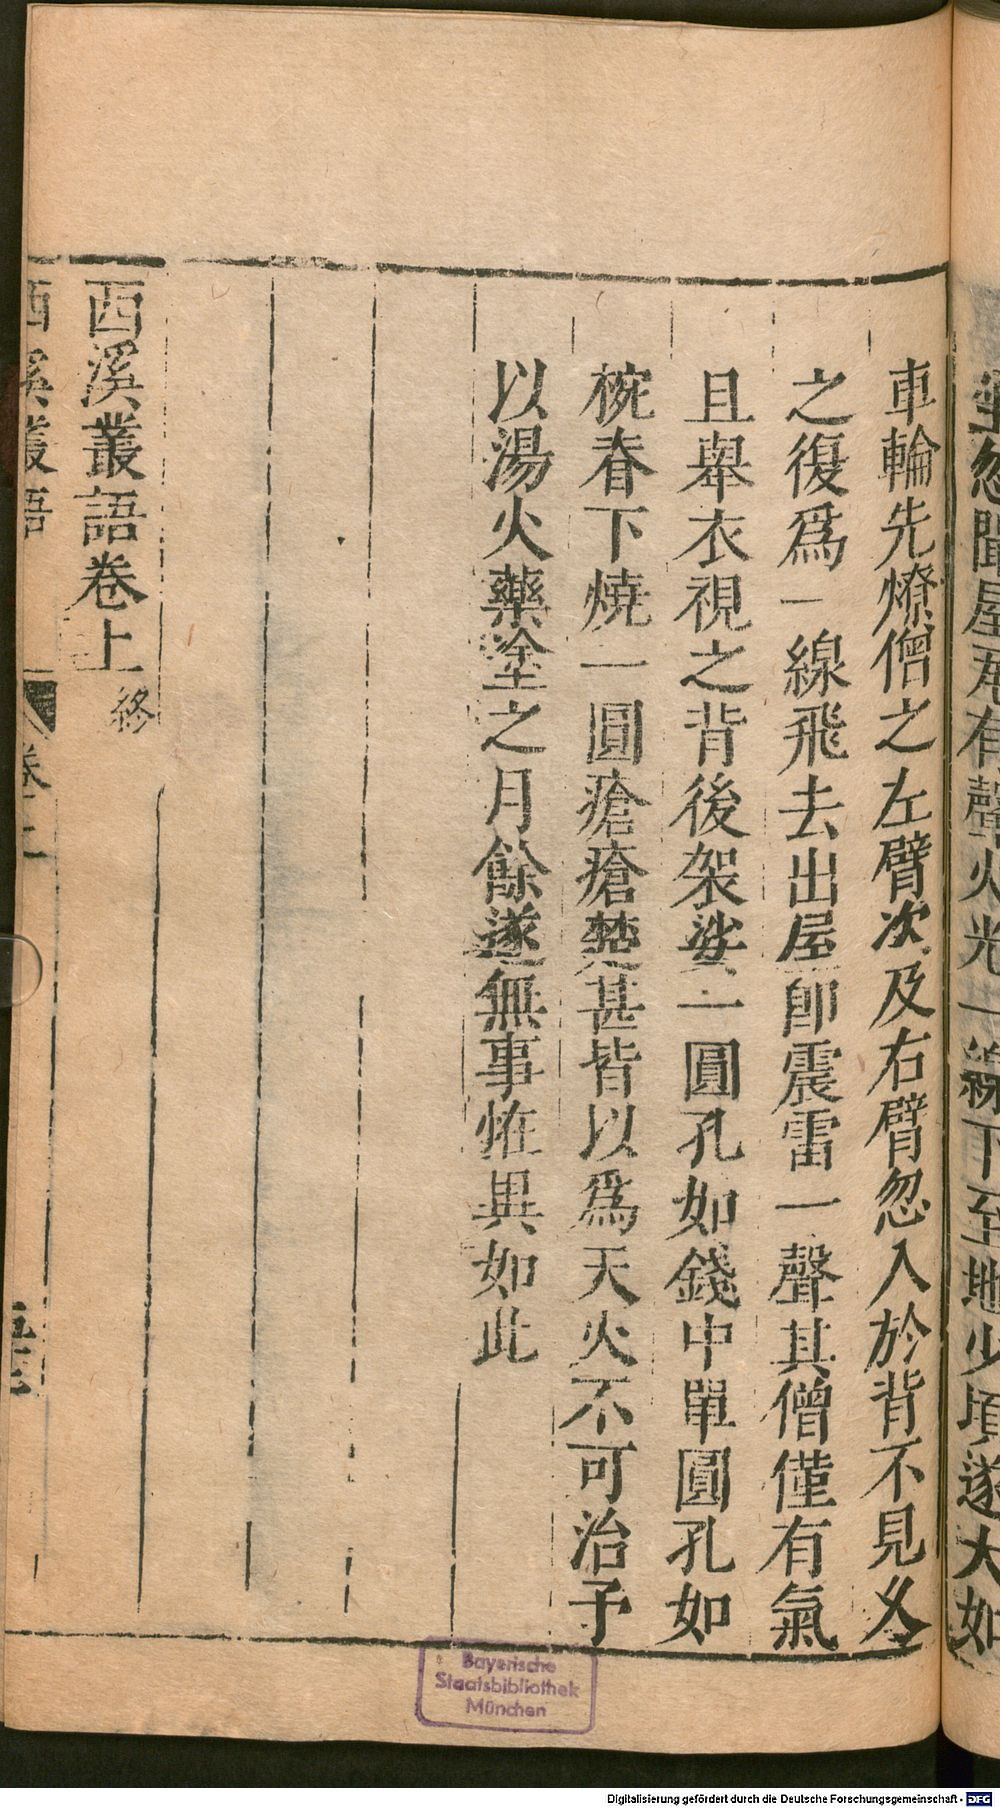 忽聞屋瓦有聲火光一線下至地少頃遂大如
車輪先燎僧之左臂次及右臂忽入於背不見久
之復爲一線飛去出屋卽震雷一聲其僧僅有氣
且舉衣視之背後架裟一圓孔如錢中單圓孔如
椀脊下燒一圓瘡瘡楚甚皆以爲天火不可治予
以湯火藥塗之月餘遂無事恠異如此
西溪叢語卷上 終
西溪叢語 卷上
Bayerische
Staatsbibliothek
München
Digitalisierung gefördert durch die Deutsche Forschungsgemeinschaft - DFG